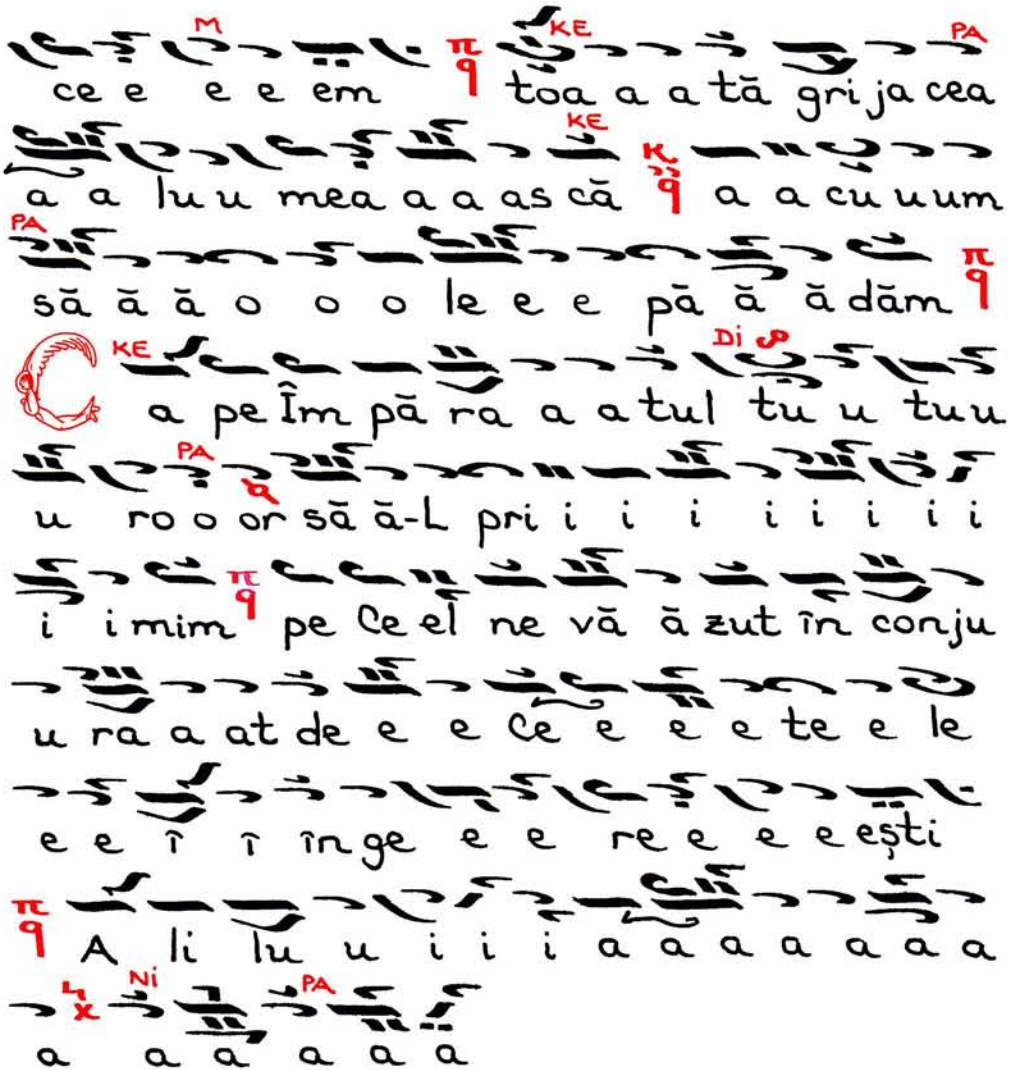 M KE PA
ce e e e em toa a a tă gri ja cea
KE
a a lu u mea a a as că a a cu u um
PA
să ă ă o o o le e e pă ă ă dăm
KE Di
C a pe Îm pă ra a a tul tu u tu u
PA
u ro o or să ă-L pri i i i i i i i i
i i mim pe Ce el ne vă ă zut în con ju
u ra a at de e e Ce e e e te e le
e e î î în ge e e re e e e ești
A li lu u i i i a a a a a a a
Ni PA
a a a a a a